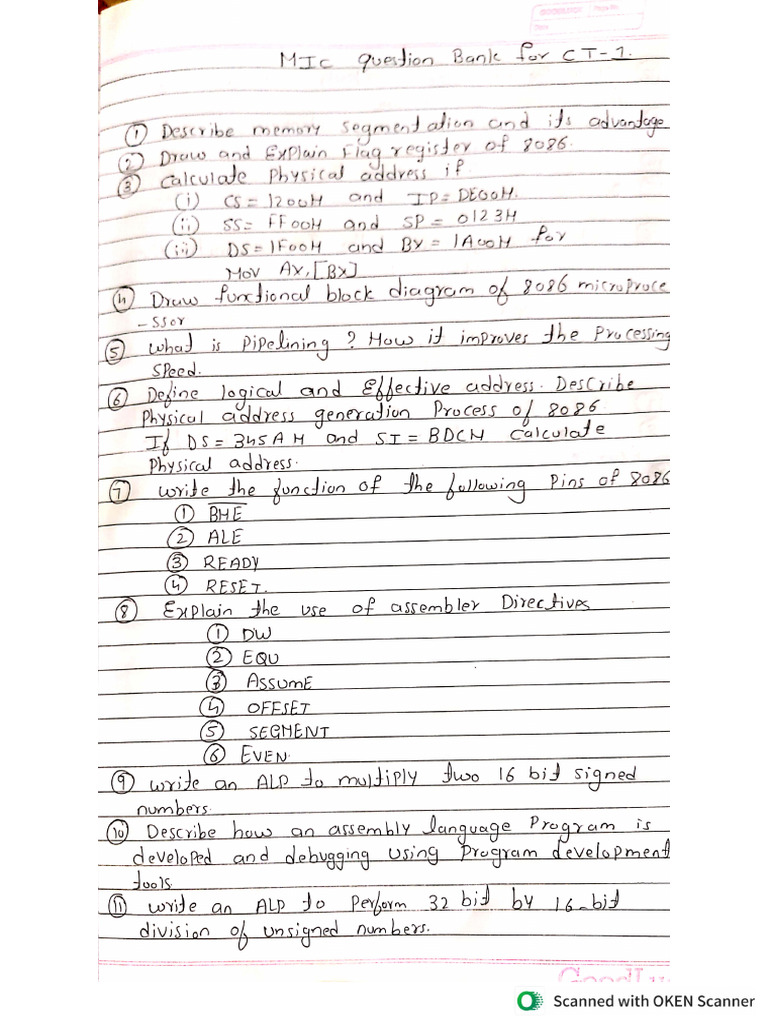 MIC Question Bank for CT-1.
① Describe memory segmentation and its advantage
② Draw and Explain Flag register of 8086.
③ Calculate Physical address if
(i) CS = 1200H and IP = DE00H.
(ii) SS = FF00H and SP = 0123H
(iii) DS = 1F00H and BX = 1A00H for
MOV AX, [BX]
④ Draw functional block diagram of 8086 microproce
-ssor
⑤ what is Pipelining ? How it improves the Processing
Speed.
⑥ Define logical and Effective address. Describe
Physical address generation Process of 8086.
If DS = 345A H and SI = BDCH Calculate
Physical address.
⑦ write the function of the following Pins of 8086
① B̅H̅E̅
② ALE
③ READY
④ RESET.
⑧ Explain the use of assembler Directives
① DW
② EQU
③ ASSUME
④ OFFSET
⑤ SEGMENT
⑥ EVEN.
⑨ write an ALP to multiply two 16 bit signed
numbers.
⑩ Describe how an assembly language Program is
developed and debugging using Program development
tools.
⑪ write an ALP to Perform 32 bit by 16-bit
division of unsigned numbers.
Scanned with OKEN Scanner